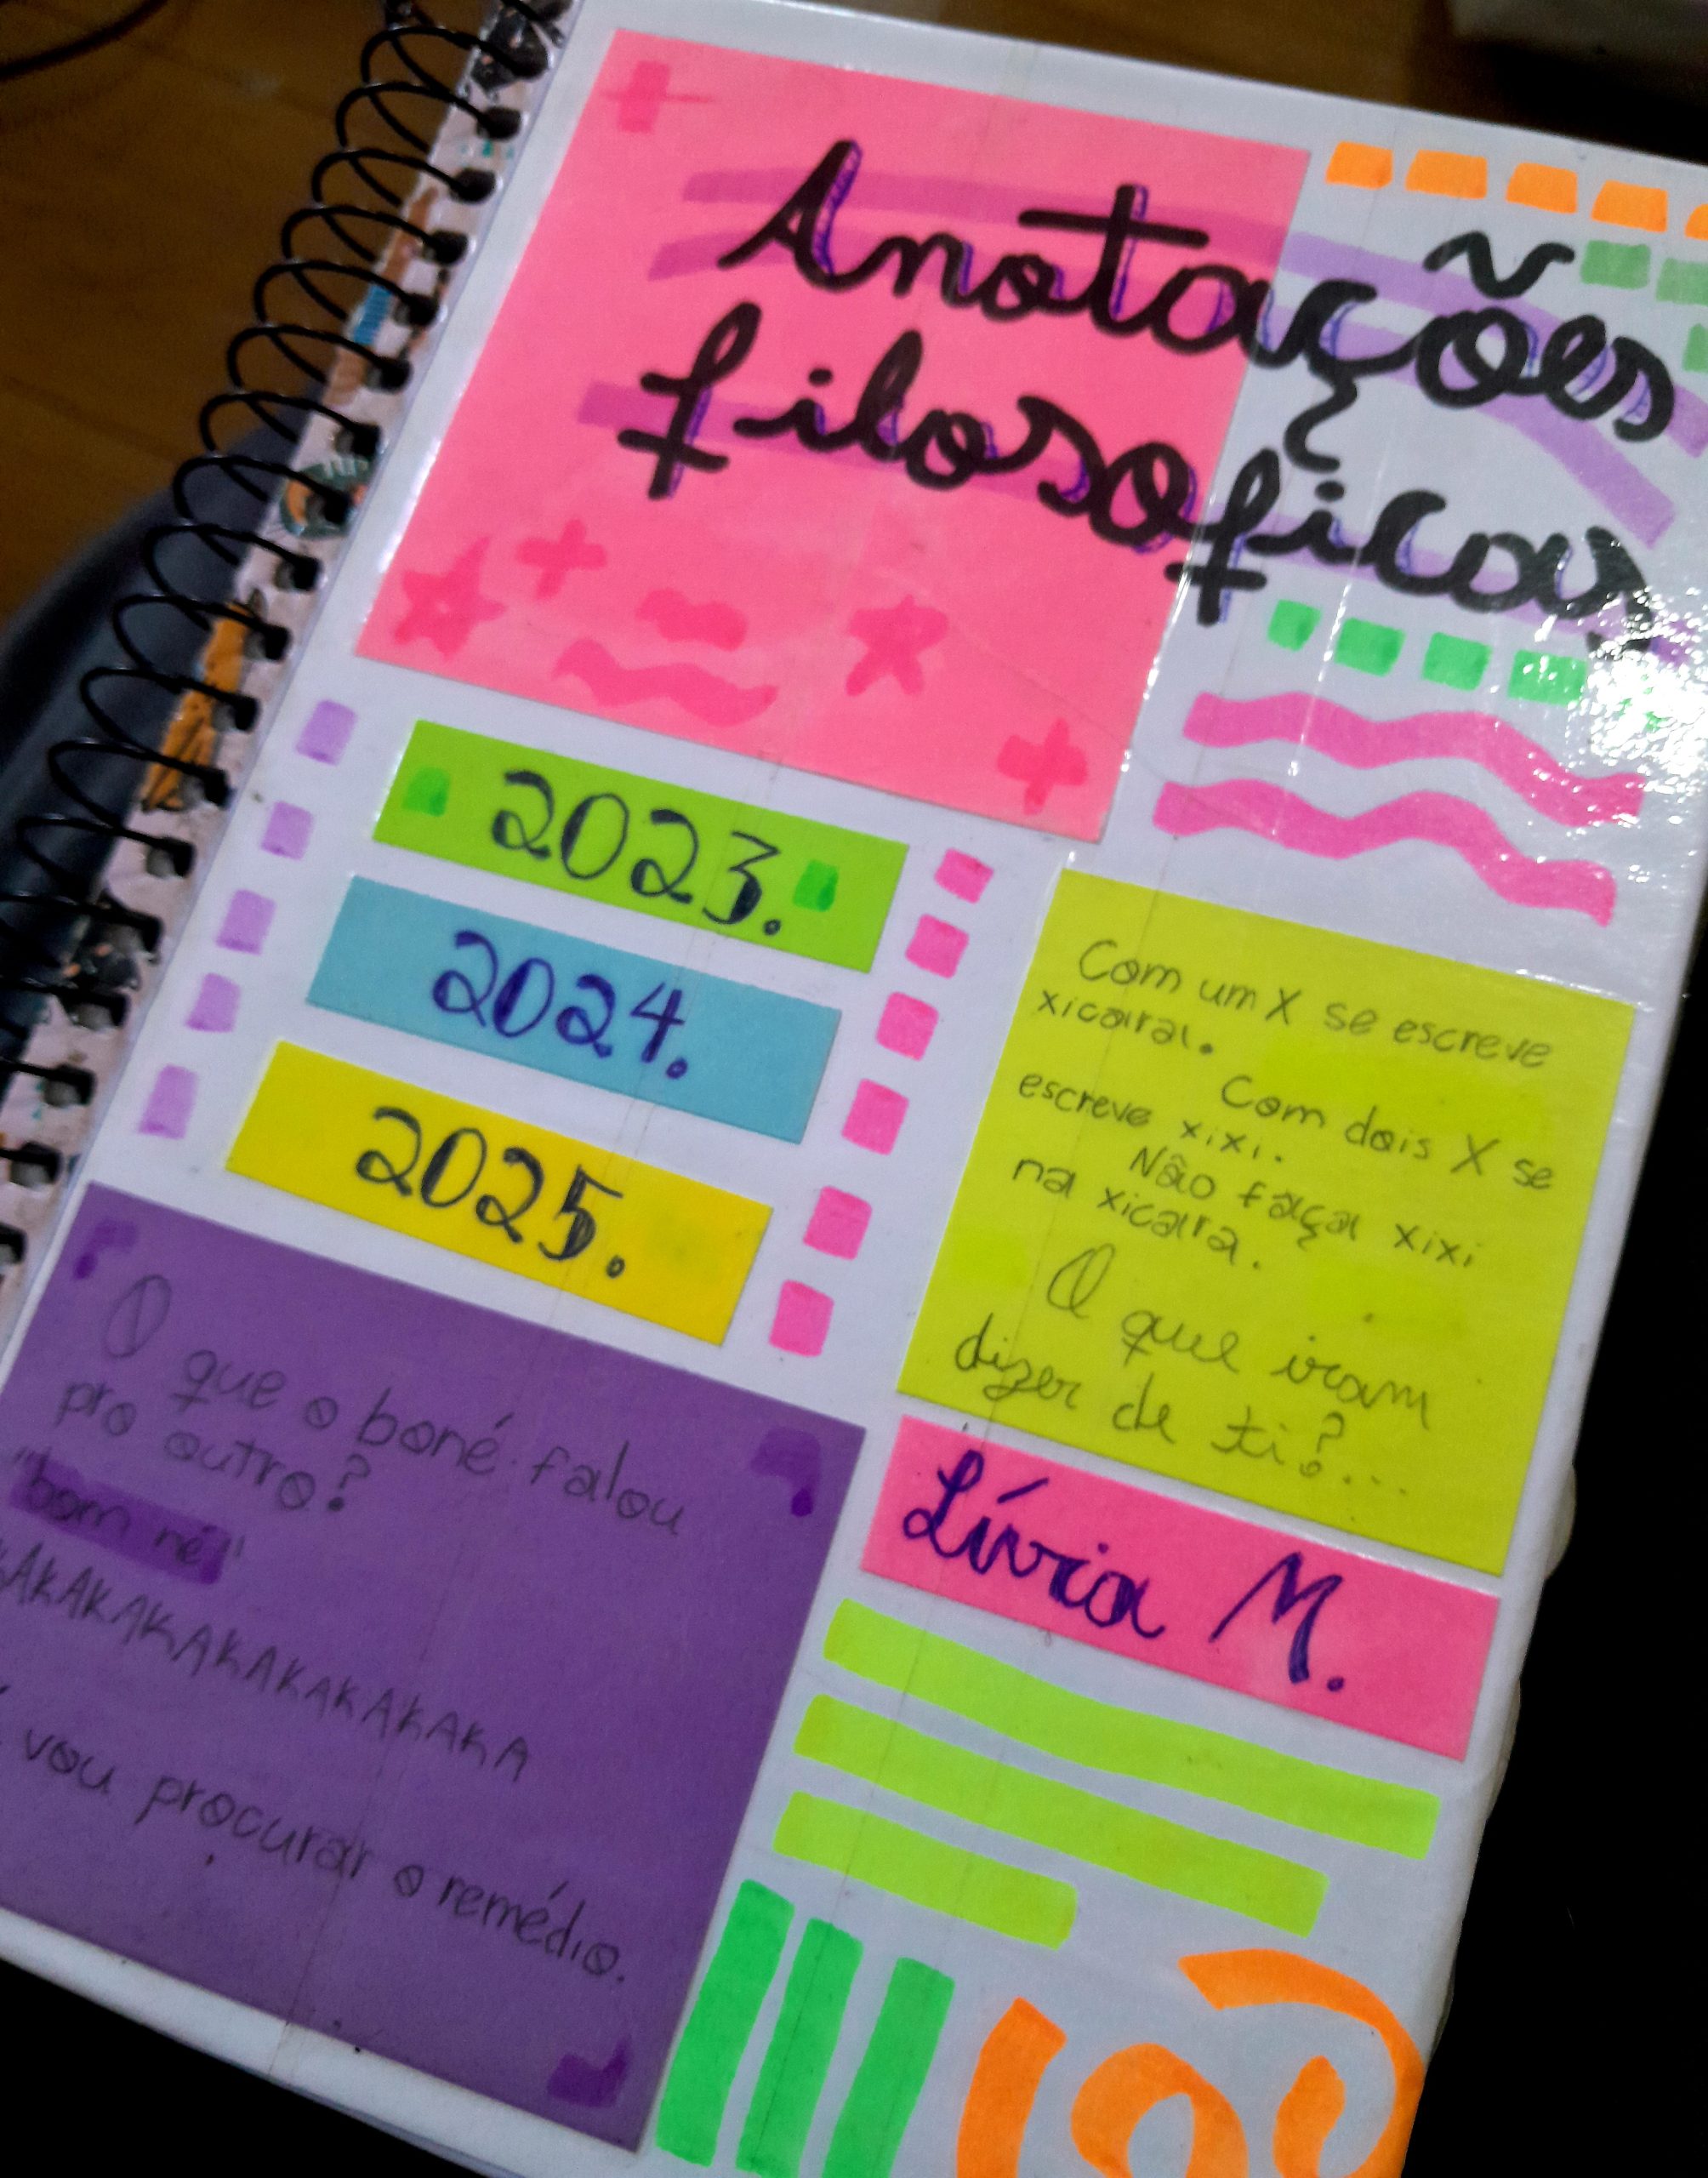 Anotações
filosoficas
2023.
2024.
2025.
Com um X se escreve
xicara.
Com dois X se
escreve xixi.
Não faça xixi
na xicara.
O que iram
dizer de ti?...
Lívia M.
O que o boné falou
pro outro?
"bom né"
AKAKAKAKAKAKAKAKAKA
vou procurar o remédio.